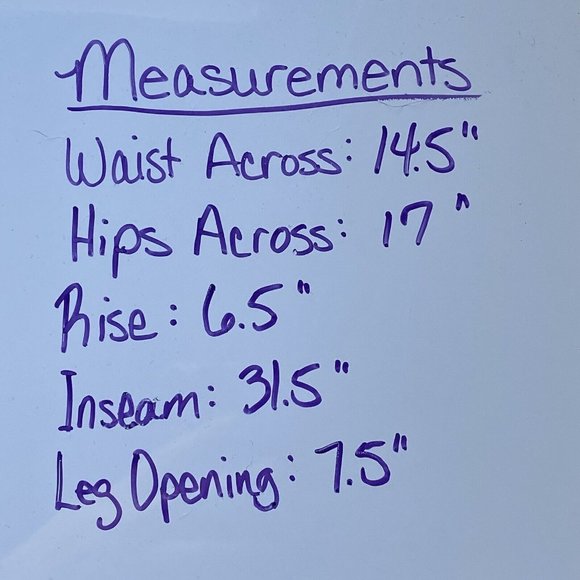 Measurements
Waist Across: 14.5"
Hips Across: 17"
Rise: 6.5"
Inseam: 31.5"
Leg Opening: 7.5"